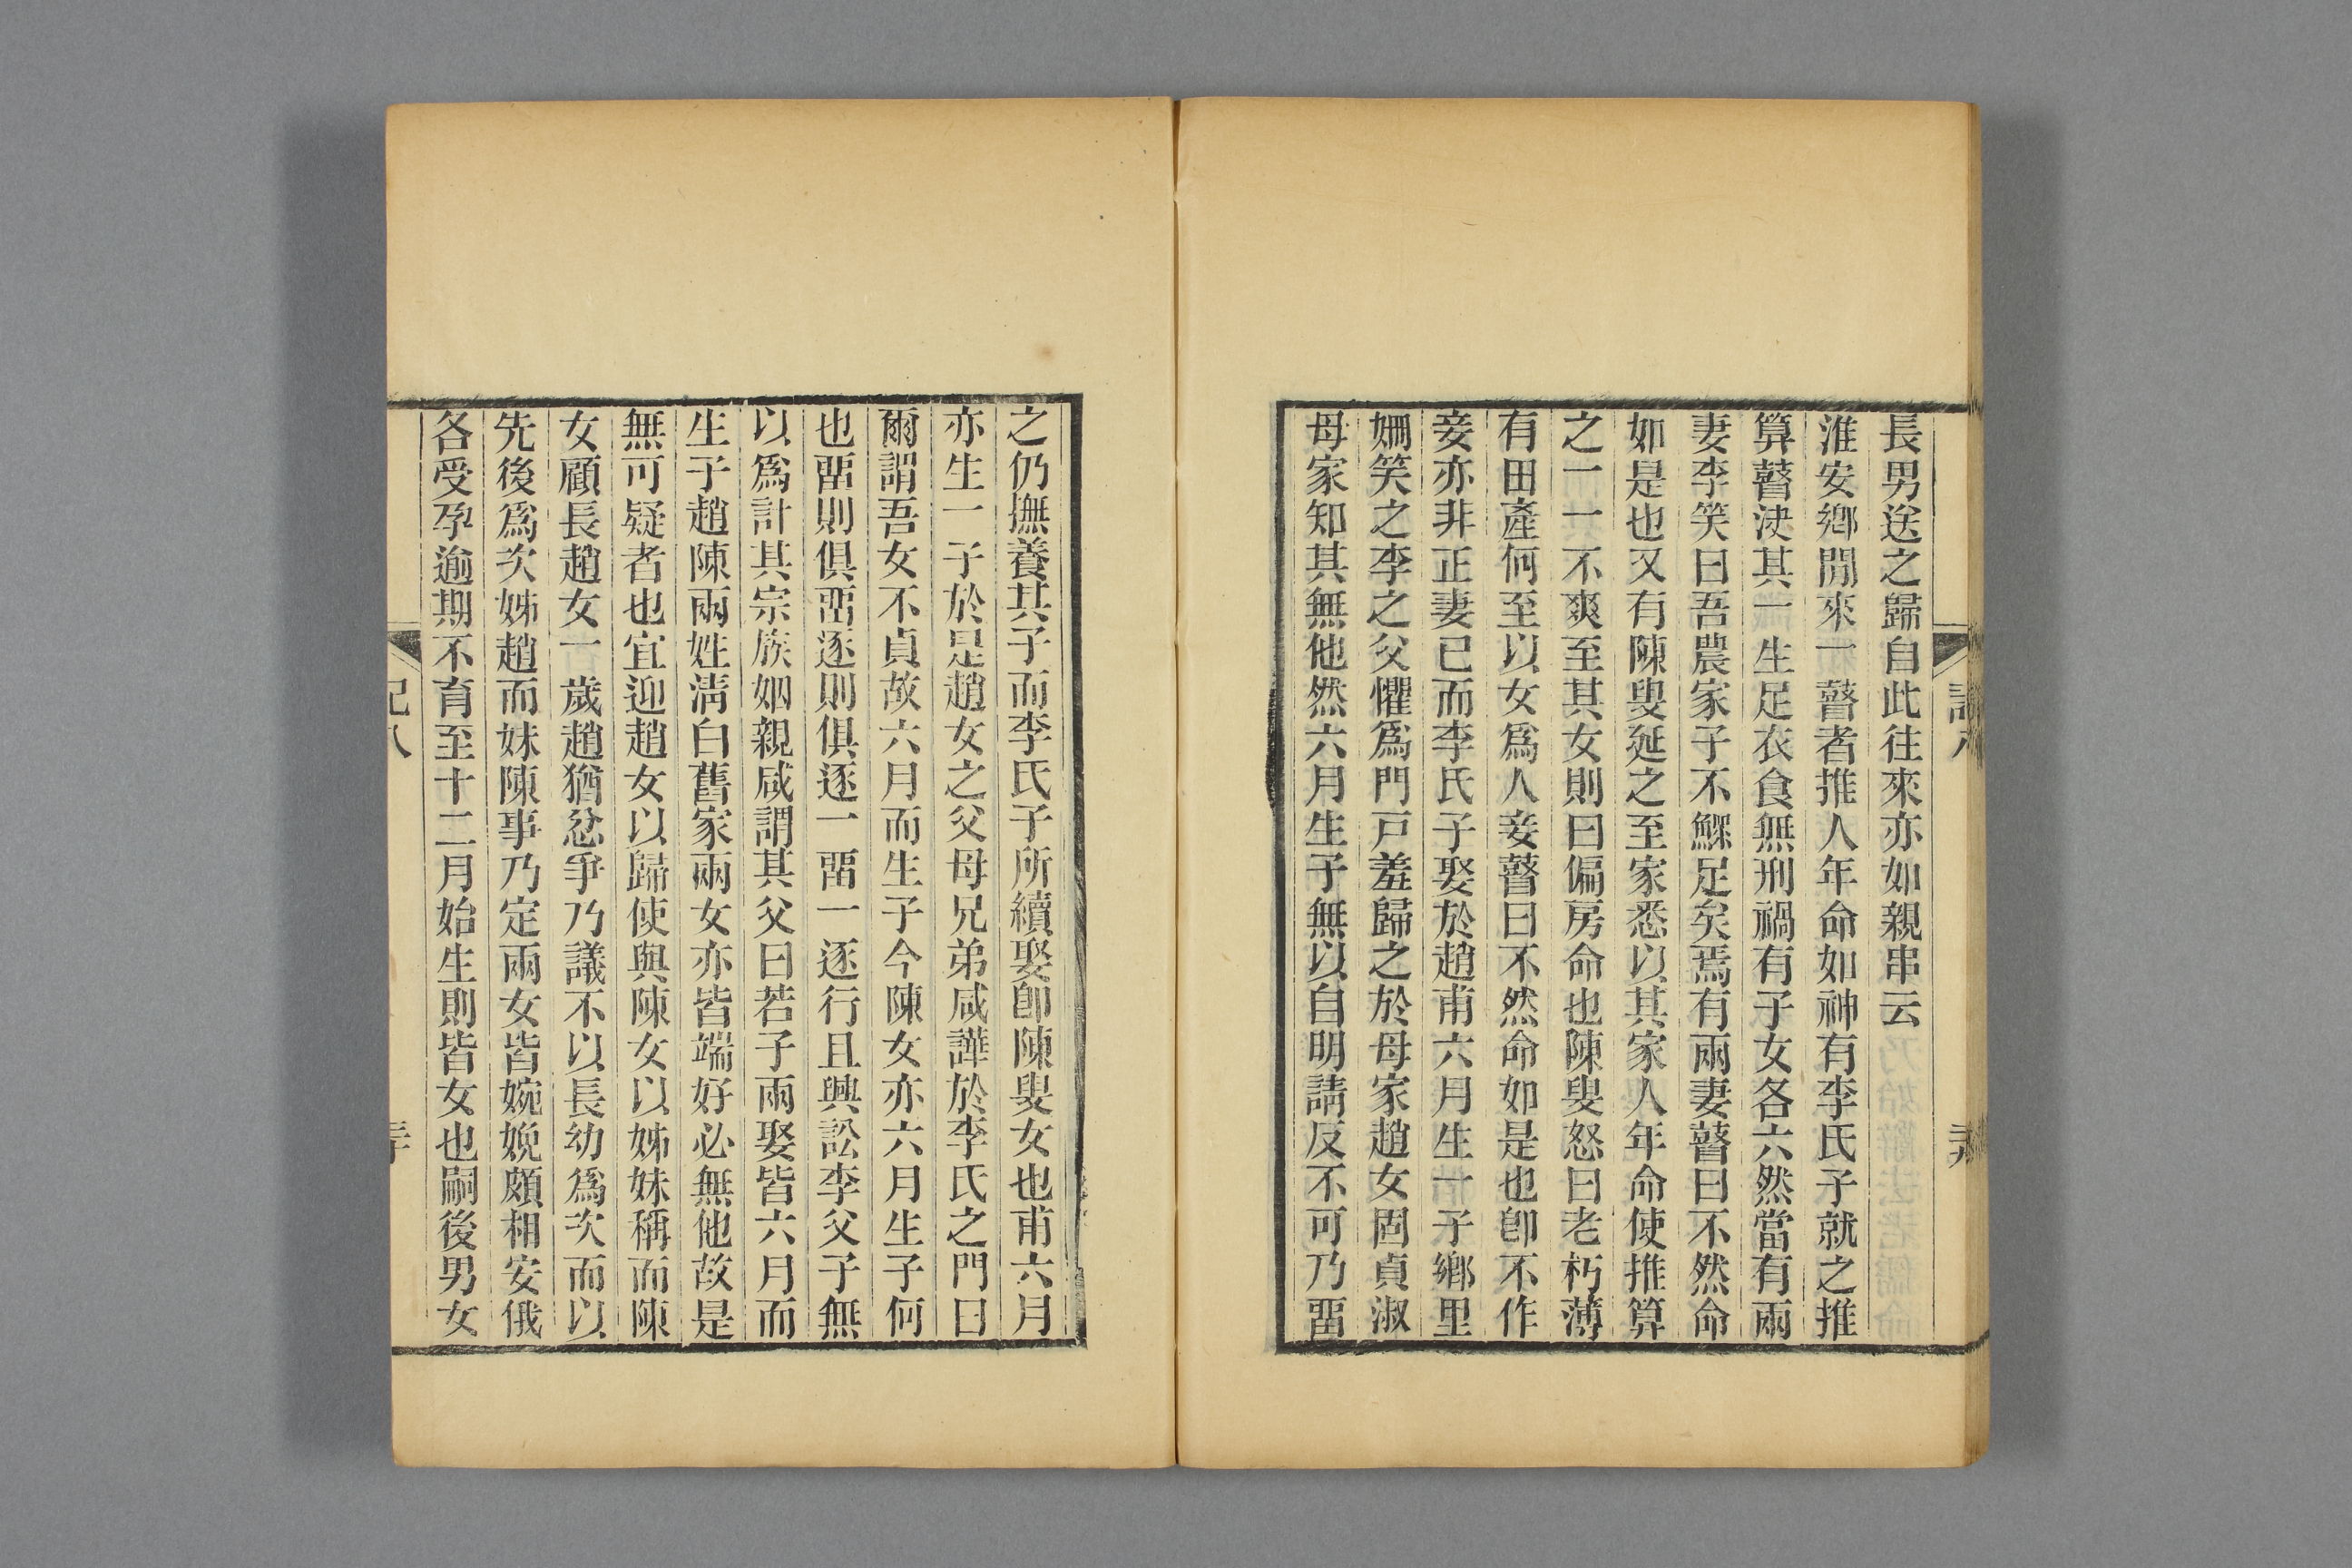 長男送之歸自此往來亦如親串云
淮安鄉閒來一瞽者推人年命如神有李氏子就之推
算瞽決其一生足衣食無刑禍有子女各六然當有兩
妻李笑曰吾農家子不鰥足矣焉有兩妻瞽曰不然命
如是也又有陳叟延之至家悉以其家人年命使推算
之一一不爽至其女則曰偏房命也陳叟怒曰老朽薄
有田產何至以女爲人妾瞽曰不然命如是也卽不作
妾亦非正妻已而李氏子娶於趙甫六月生一子鄉里
姍笑之李之父懼爲門戸羞歸之於母家趙女固貞淑
母家知其無他然六月生子無以自明請反不可乃畱
之仍撫養其子而李氏子所續娶卽陳叟女也甫六月
亦生一子於是趙女之父母兄弟咸譁於李氏之門曰
爾謂吾女不貞故六月而生子今陳女亦六月生子何
也畱則俱畱逐則俱逐一畱一逐行且興訟李父子無
以爲計其宗族姻親咸謂其父曰若子兩娶皆六月而
生子趙陳兩姓淸白舊家兩女亦皆端好必無他故是
無可疑者也宜迎趙女以歸使與陳女以姊妹稱而陳
女顧長趙女一歲趙猶忿爭乃議不以長幼爲次而以
先後爲次姊趙而妹陳事乃定兩女皆婉娩頗相安俄
各受孕逾期不育至十二月始生則皆女也嗣後男女